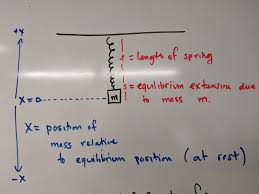 +x
l = length of spring
s = equilibrium extension due
to mass m.
m
x=0
X = position of
mass relative
to equilibrium position (at rest)
-x